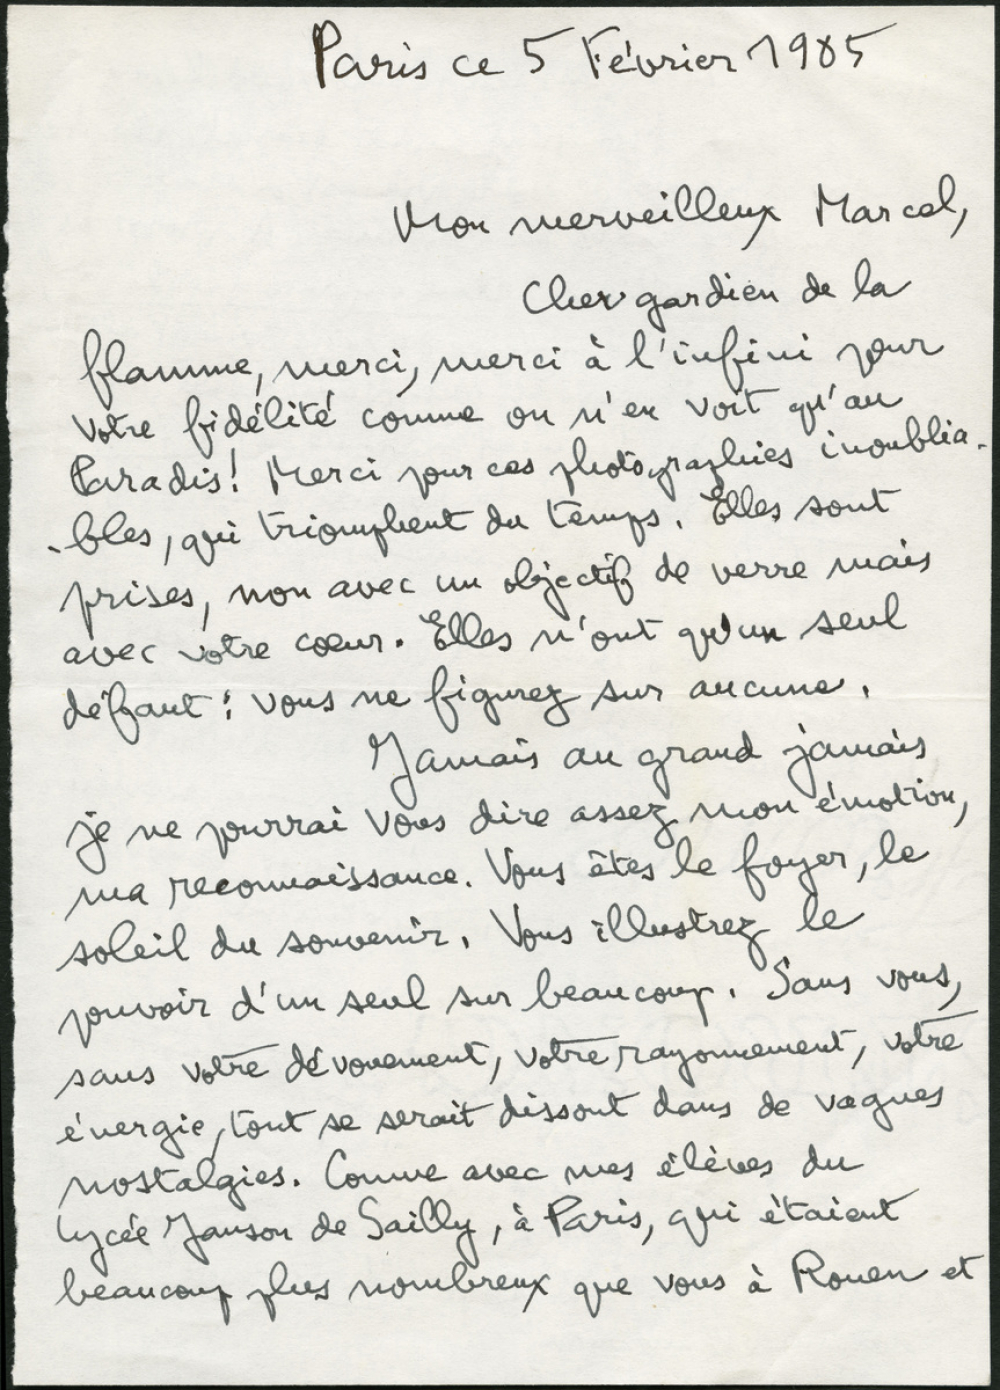 Paris ce 5 Février 1985
Mon merveilleux Marcel,
Cher gardien de la
flamme, merci, merci à l'infini pour
votre fidélité comme on n'en voit qu'au
Paradis! Merci pour ces photographies inoublia-
-bles, qui triomphent du temps. Elles sont
prises, non avec un objectif de verre mais
avec votre cœur. Elles n'ont qu'un seul
défaut : vous ne figurez sur aucune.
Jamais au grand jamais
je ne pourrai vous dire assez mon émotion,
ma reconnaissance. Vous êtes le foyer, le
soleil du souvenir. Vous illustrez le
pouvoir d'un seul sur beaucoup. Sans vous,
sans votre dévouement, votre rayonnement, votre
énergie, tout se serait dissout dans de vagues
nostalgies. Comme avec mes élèves du
Lycée Janson de Sailly, à Paris, qui étaient
beaucoup plus nombreux que vous à Rouen et